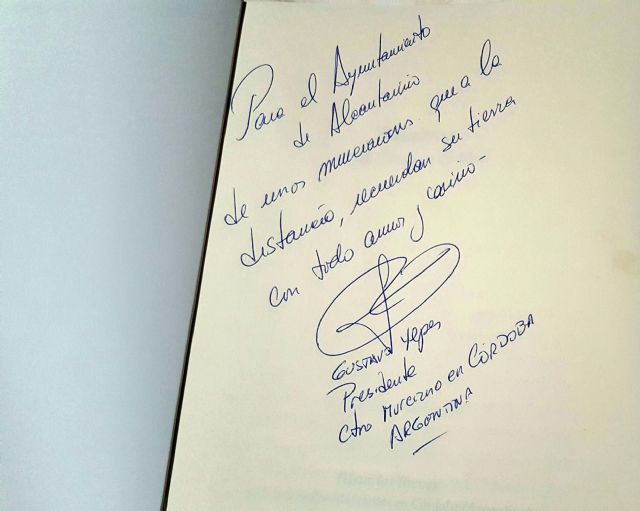 Para el Ayuntamiento
de Alcantarilla
de unos murcianos que a la
distancia, recuerdan su tierra
con todo amor y cariño-
GUSTAVO Yepes
Presidente
Ctro Murciano en CÓRDOBA
ARGENTINA